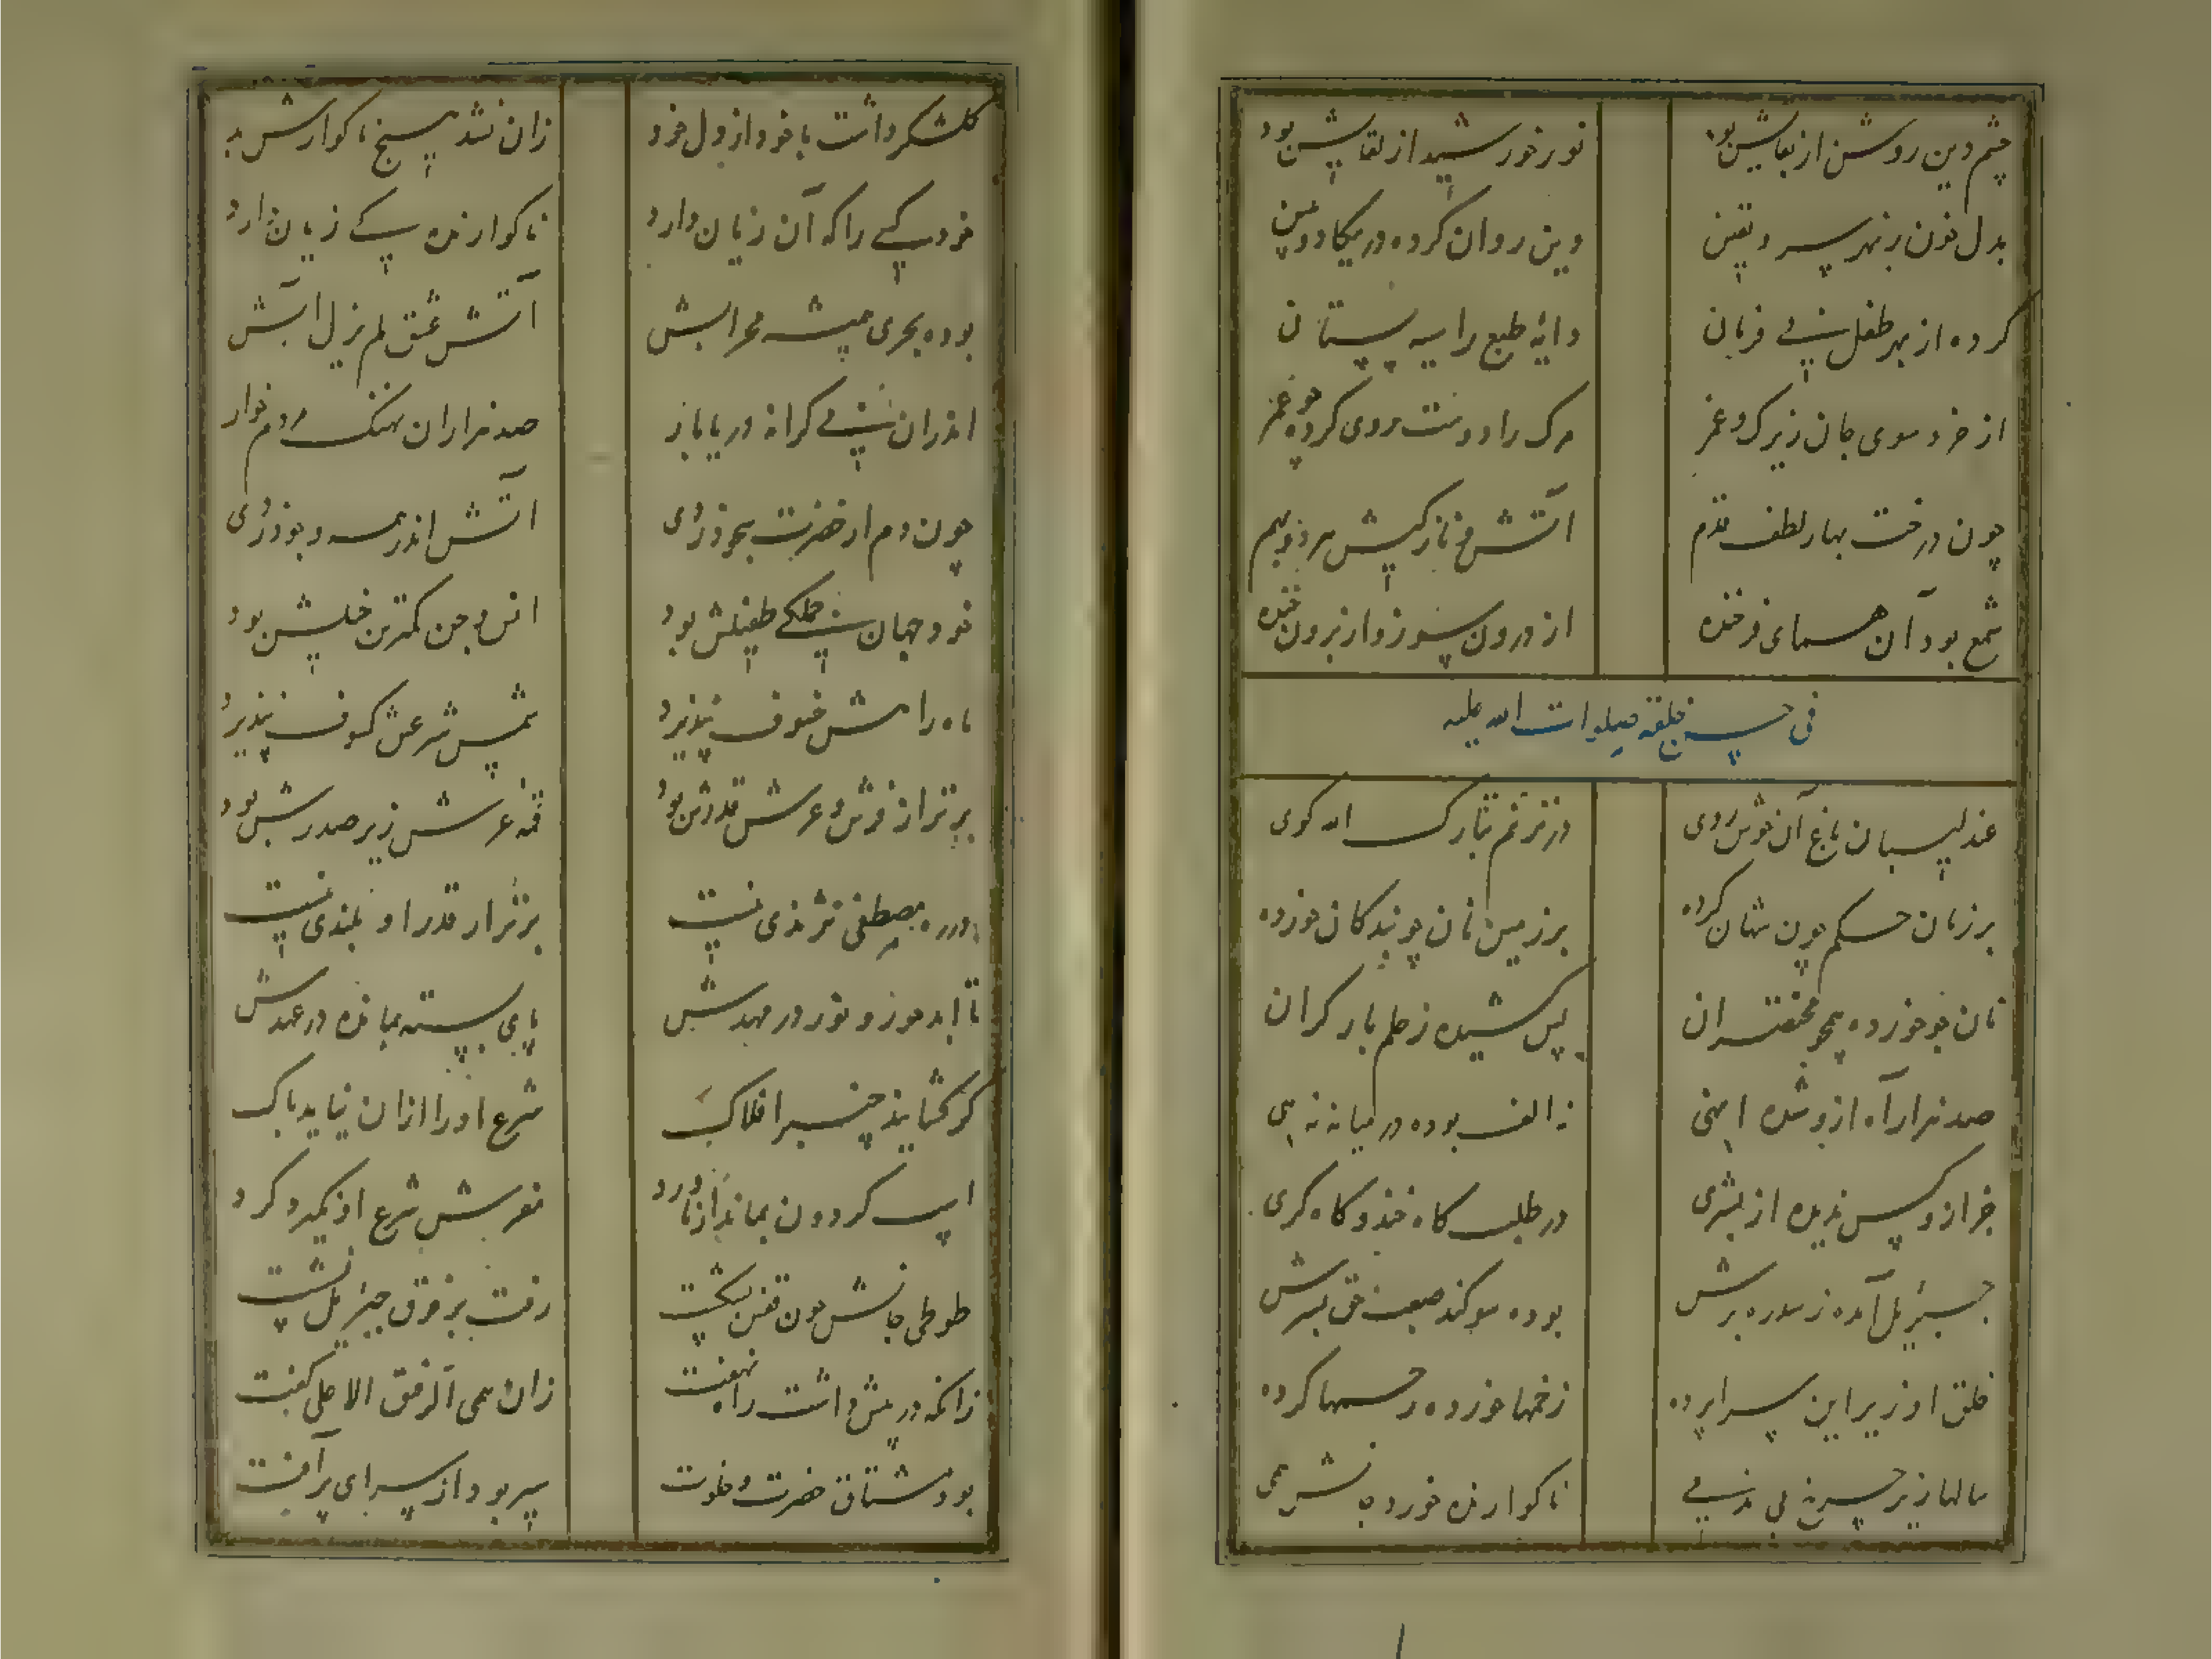 چشم دین روشن از بقایش بود نور خورشید از لقایش بود
بدل نون بر نهر و یقین دین روان کرده در یکاد و سین
کرده از بهر طفل بی فرمان دایه طبع را سیه پستان
از خرد سوی جان زیرک و غمر مرک را دوست روی کرده چو عمر
چون درخت بهار لطف قدم آتش و ناز کیش هر دو بهم
شمع بود آن همای فرخنده از درون سوز و از برون خنده
فی حسن خلقه صلوات الله علیه
عندلیبان باغ آن خوش روی در ترنم تبارک الله کوی
بر زمان حکم چون شهان کرده بر زمین نان چو بندکان خورده
نان جو خورده همچو مختصران پس کشیده ز حلم بار کران
صد هزار آه ازو شده اسهی نه الف بوده در میانه نه هی
جز ازو کس ندیده از بشری در طلب کاه خند و کاه کری
جبرئیل آمده ز سدره برش بوده سوکند صعب حق بسرش
خلق او زیر این سراپرده زخمها خورده رحمها کرده
سالها زیر چرخ بی ندمی ناکوارنده خورده جانش همی
کلشکر داشت با خود از دل خود زان نشد هیچ ناکوارش بد
خورد پی را که آن زیان دارد ناکوارنده پی زیان دارد
بوده بحری همیشه محرابش آتش عشق لم یزل آبش
اندران بی کرانه دریا باز صد هزاران نهنک مردم خوار
چون دم از حضرت سجود زدی آتش اندر همه وجود زدی
خود جهان جملکی طفیلش بود انس و جن کمترین خیلش بود
ماه رامش خسوف نپذیرد شمس شرعش کسوف نپذیرد
برتر از فرش و عرش قدرش بود قمه عرش زیر صدرش بود
در ره مصطفی نژندی نیست برتر از قدر او بلندی نیست
تا ابد جوز و ثور در مهدش پای بسته بمانده در عهدش
کر کشایند چنبر افلاک شرع او را ازان نیاید باک
اسب کردون بماند از ناورد مفرش شرع او نکیرد کرد
طوطی جانش چون قفس بشکست رفت بر فرق جبرئیل نشست
زانکه در پیش داشت راه نهفت زان همی الرفیق الاعلی کفت
بود مشتاق حضرت و خلوت سیر بود از سرای پر آفت